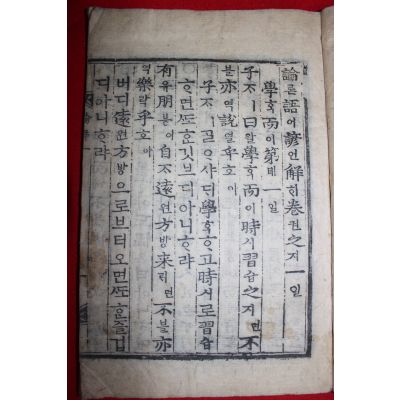 論론語어諺언解ᄒᆡ卷권之지一일
學ᄒᆞᆨ而이第뎨一일
子ᄌᆞㅣ曰왈學ᄒᆞᆨ而이時시習습之지면不
블亦역說열乎호아
子ᄌᆞㅣᄀᆞᆯᄋᆞ샤ᄃᆡ學ᄒᆞᆨᄒᆞ고時시로習습
ᄒᆞ면ᄯᅩᄒᆞᆫ깃브디아니ᄒᆞ랴
有유朋븡이自ᄌᆞ遠원方방來ᄅᆡ면不블亦
역樂락乎호아
버디遠원方방으로브터오면ᄯᅩᄒᆞᆫ즐겁
디아니ᄒᆞ랴